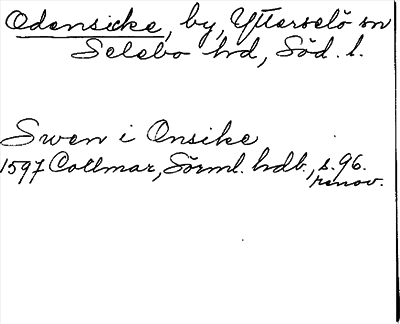 Odensicke, by, Ytterselö sn
Selebo hd, Söd. l.
Swen i Onsike
1597 Collmar, Sörml. hdb., s. 96.
renov.